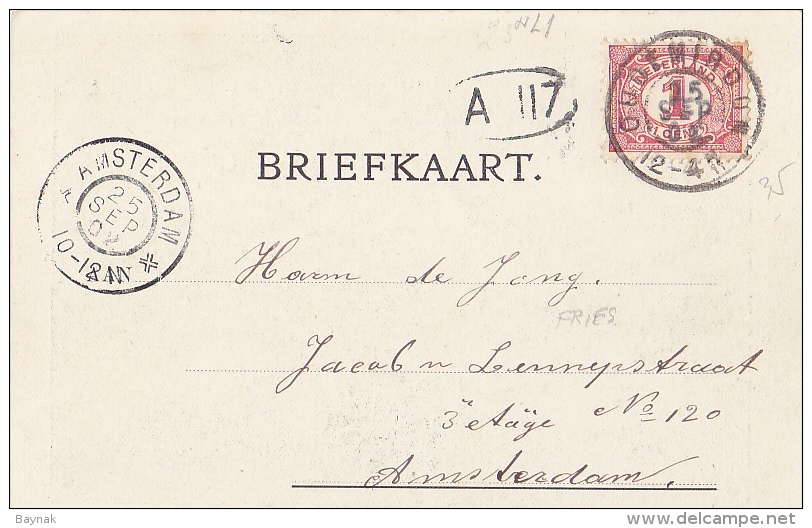 NL1
A 117
NEDERLAND
1
CENT
25
SEP
12-4N
BRIEFKAART.
AMSTERDAM
25
SEP
02
10-12N
35
Harm de Jong.
FRIES
Jacob v Lennepstraat
3e etage No 120
Amsterdam.
Baynak
delcampe.net